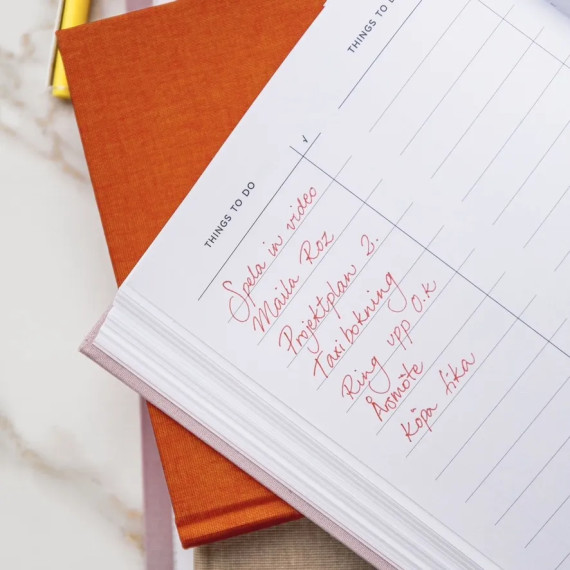 THINGS TO DO
THINGS TO DO
Spela in video
Maila Roz
Projektplan 2.
Taxibokning
Ring upp O.K
Årsmöte
Köpa fika